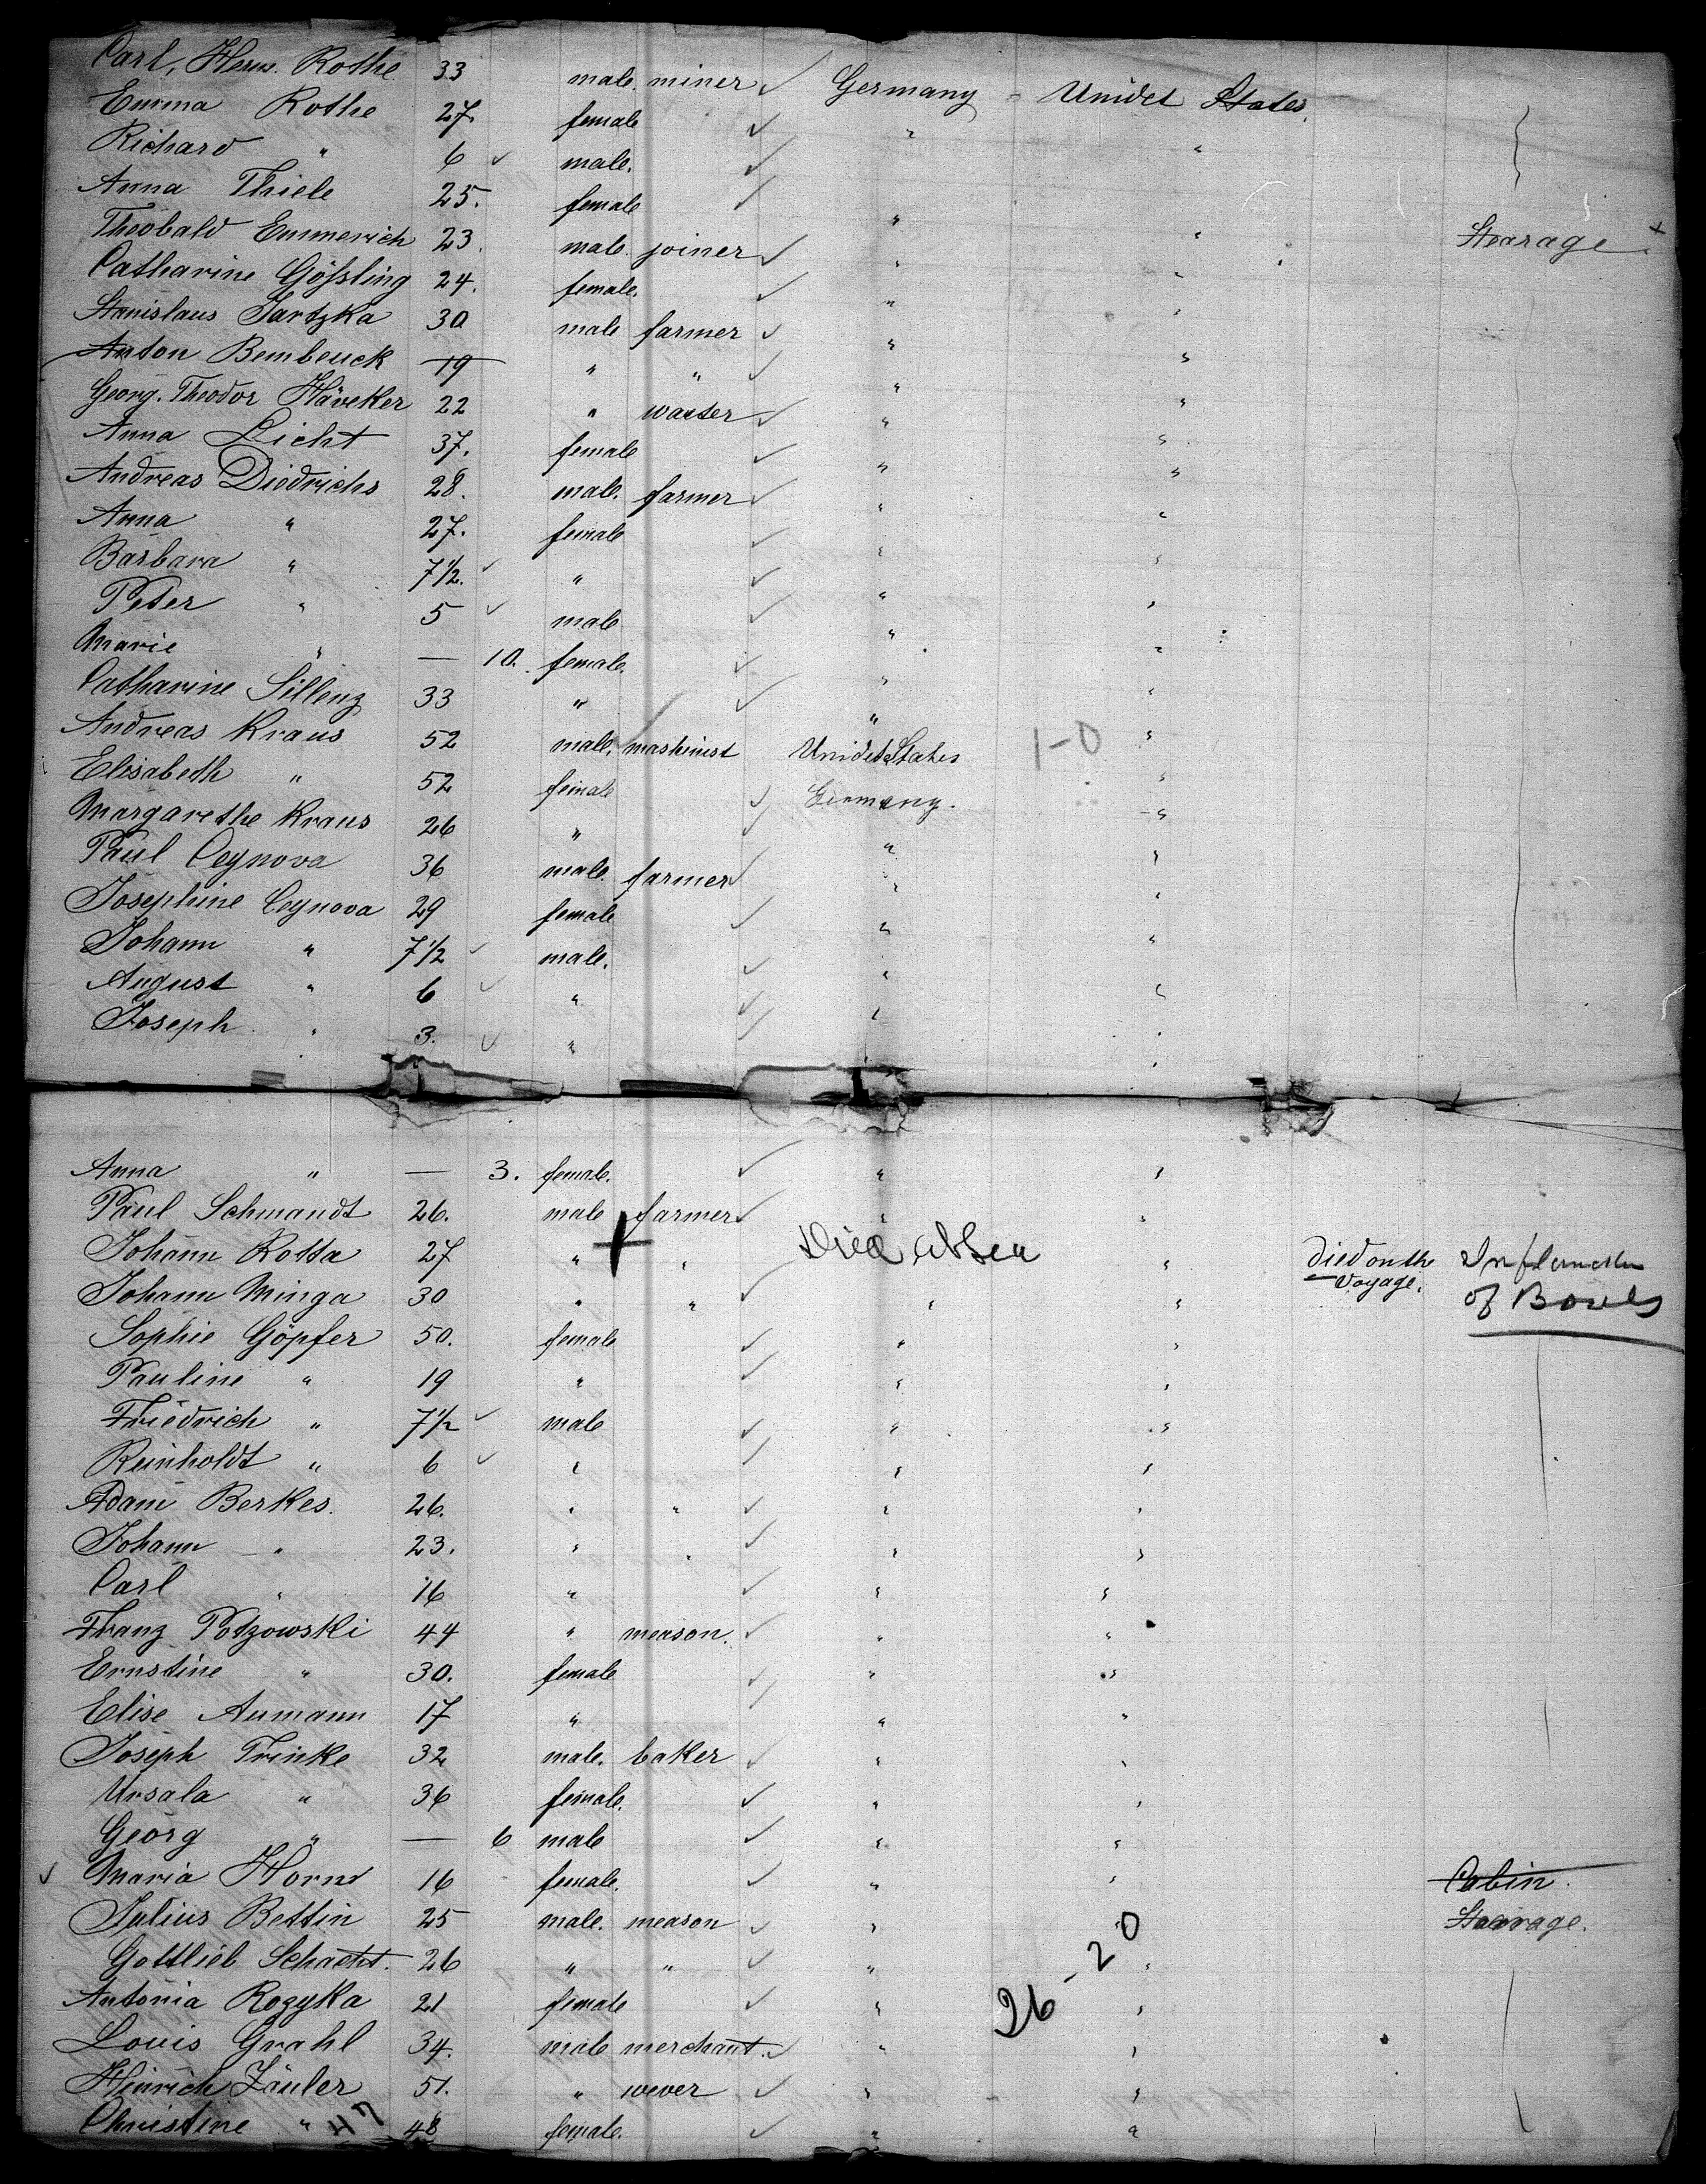 Carl, Herm. Rothe 33 male. miner ✓ Germany = Unidet States.
Emma Rothe 27. female ✓ "
Richard " 6 ✓ male. ✓ "
Anna Thiele 25. female ✓ "
Theobald Emmerich 23. male. joiner ✓ " " Stearage
Catharine Gößling 24. female. ✓ " "
Stanislaus Jartzka 30 male farmer ✓ " "
Anton Bembenck 19 " " ✓ " "
Georg. Theodor Häveker 22 " waiter ✓ " "
Anna Licht 37. female ✓ " "
Andreas Diedrichs 28. male. farmer ✓ " "
Anna " 27. female ✓ " "
Barbara " 7 1/2. ✓ " ✓ " "
Peter " 5 ✓ male ✓ " "
Marie " — 10. female. ✓ " "
Catharine Sillenz 33 " ✓ " "
Andreas Kraus 52 male. mashinist Unidet States 1-0 "
Elisabeth " 52 female ✓ Germany. "
Margarethe Kraus 26 " ✓ " "
Paul Ceynova 36 male. farmer ✓ " "
Josephine Ceynova 29 female ✓ " "
Johann " 7 1/2 ✓ male. ✓ " "
August " 6 ✓ " ✓ " "
Joseph " 3. ✓ " ✓ " "
Anna " — 3. female. ✓ " "
Paul Schmandt 26. male farmer ✓ " "
Johann Rotta 27 " " Died at Sea " Died on the Voyage. of Bowels
Johann Minga 30 " " ✓ " "
Sophie Göpfer 50. female ✓ " "
Pauline " 19 " ✓ " "
Friedrich " 7 1/2 ✓ male ✓ " "
Reinholdt " 6 ✓ " ✓ " "
Adam Berkes. 26. " " ✓ " "
Johann " 23. " " ✓ " "
Carl " 16 " ✓ " "
Franz Potzowski 44 " meason. ✓ " "
Ernstine " 30. female ✓ " "
Elise Aumann 17 " ✓ " "
Joseph Trinke 32 male. baker ✓ " "
Ursala " 36 female. ✓ " "
Georg " — 6 male ✓ " "
✓ Maria Horn 16 female. ✓ " " Cabin.
Julius Bettin 25 male. meason ✓ " " Stearage.
Gottlieb Schacht. 26 " " ✓ " "
Antonia Rozyka 21 female ✓ " 26-20 "
Louis Grahl 34. male merchant. ✓ " "
Heinrich Zäuler 51. " wever ✓ " "
Christine " 47 48 female. ✓ " "